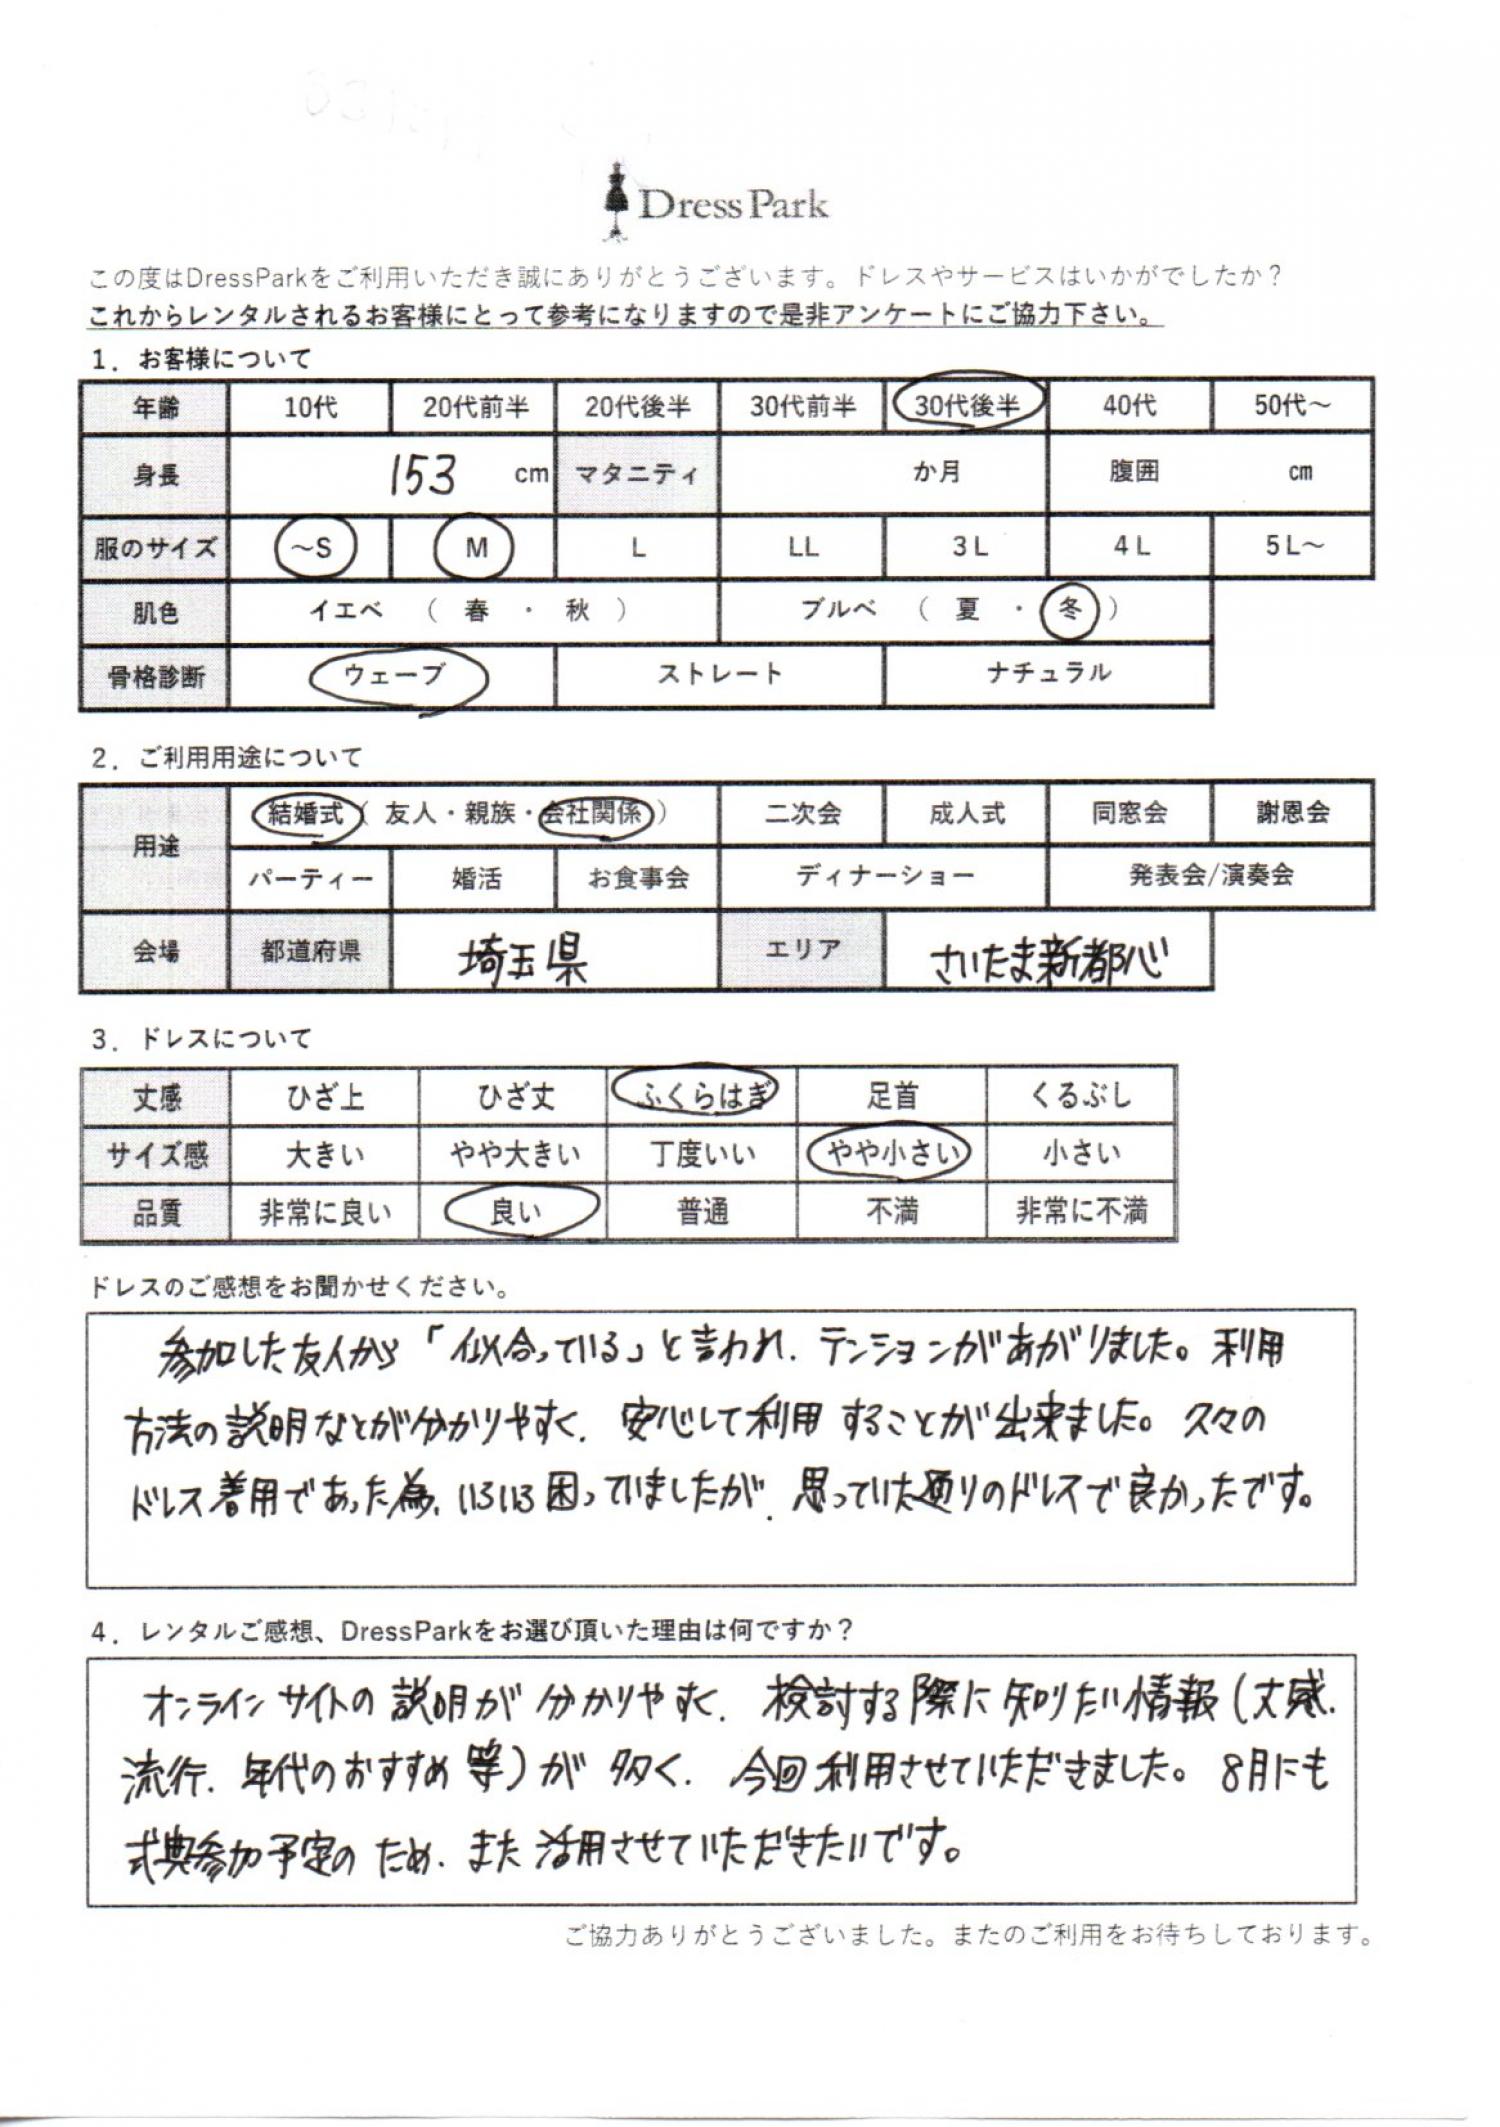 DressPark
この度はDressParkをご利用いただき誠にありがとうございます。ドレスやサービスはいかがでしたか？
これからレンタルされるお客様にとって参考になりますので是非アンケートにご協力下さい。
1．お客様について
年齢 10代 20代前半 20代後半 30代前半 30代後半 40代 50代～
身長 153 cm マタニティ か月 腹囲 cm
服のサイズ ～S M L LL 3L 4L 5L～
肌色 イエベ （ 春 ・ 秋 ） ブルベ （ 夏 ・ 冬 ）
骨格診断 ウェーブ ストレート ナチュラル
2．ご利用用途について
用途 結婚式（ 友人・親族・会社関係 ） 二次会 成人式 同窓会 謝恩会
パーティー 婚活 お食事会 ディナーショー 発表会/演奏会
会場 都道府県 埼玉県 エリア さいたま新都心
3．ドレスについて
丈感 ひざ上 ひざ丈 ふくらはぎ 足首 くるぶし
サイズ感 大きい やや大きい 丁度いい やや小さい 小さい
品質 非常に良い 良い 普通 不満 非常に不満
ドレスのご感想をお聞かせください。
参加した友人から「似合っている」と言われ、テンションがあがりました。利用
方法の説明などが分かりやすく、安心して利用することが出来ました。久々の
ドレス着用であった為、いろいろ困っていましたが、思っていた通りのドレスで良かったです。
4．レンタルご感想、DressParkをお選び頂いた理由は何ですか？
オンラインサイトの説明が分かりやすく、検討する際に知りたい情報（丈感、
流行、年代のおすすめ等）が多く、今回利用させていただきました。8月にも
式典参加予定のため、また活用させていただきたいです。
ご協力ありがとうございました。またのご利用をお待ちしております。